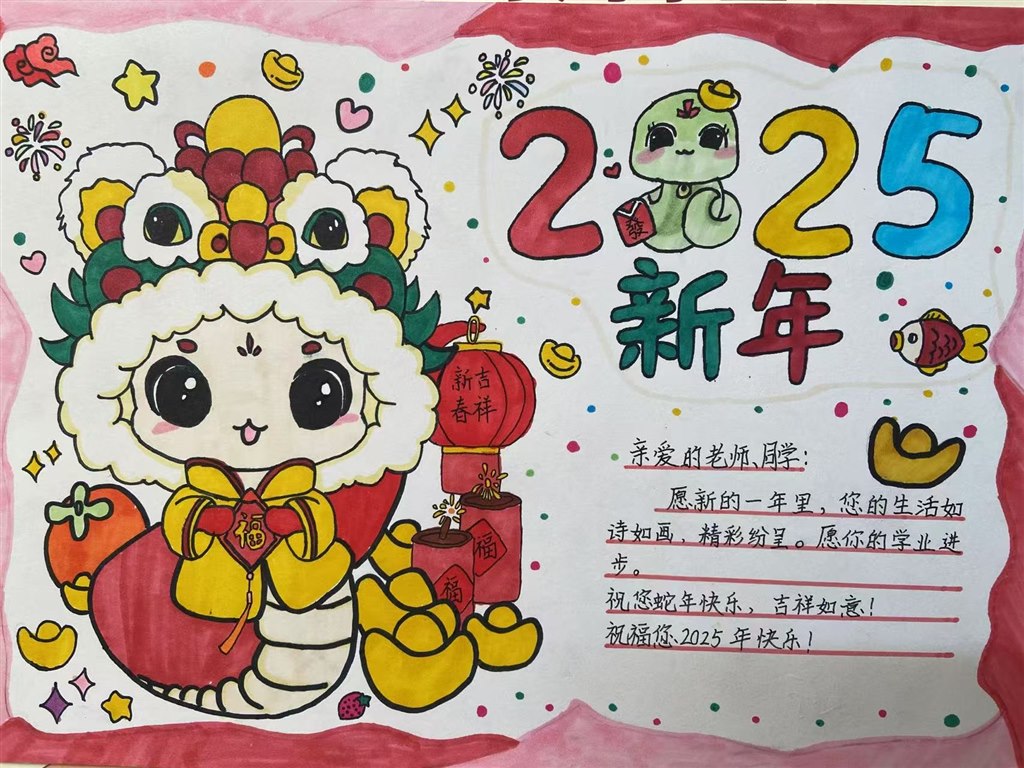 2025
發
新年
新春
吉祥
福
福
福
亲爱的老师、同学:
愿新的一年里，您的生活如
诗如画，精彩纷呈。愿你的学业进
步。
祝您蛇年快乐，吉祥如意!
祝福您2025年快乐!